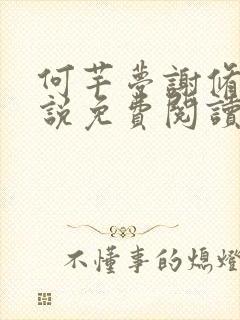 何芊夢謝脩
說免費閱讀
不懂事的熄燈